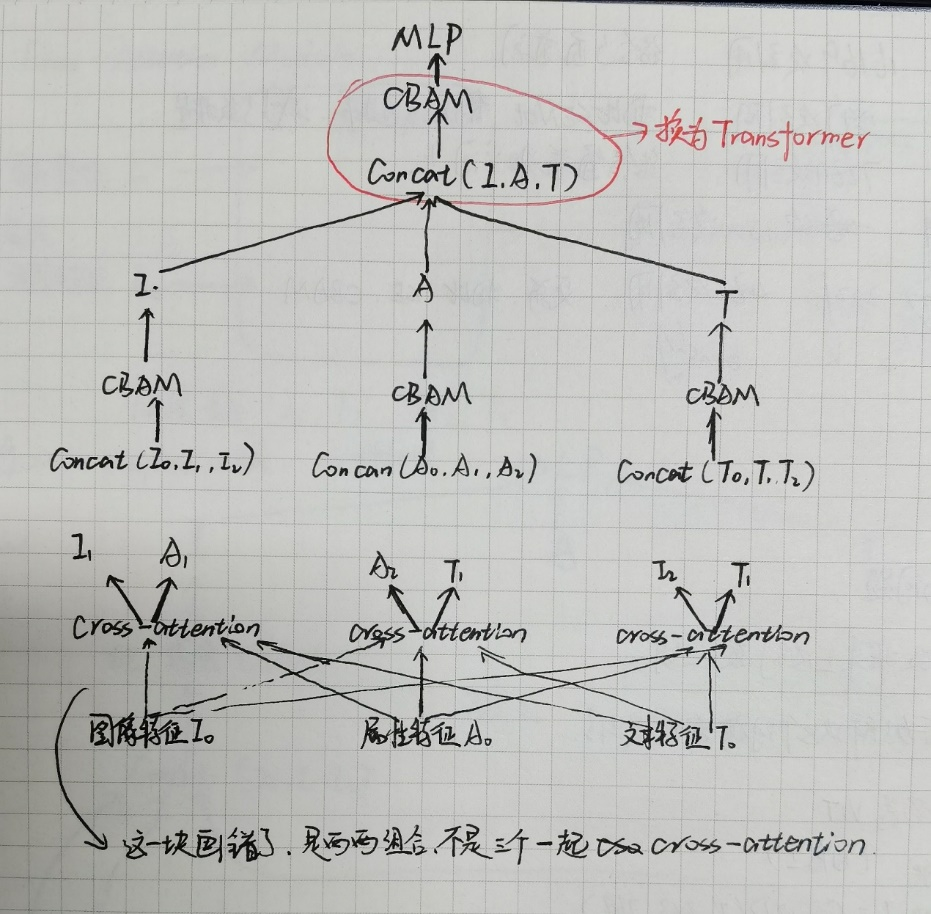 MLP
CBAM
换为Transformer
Concat(I.A.T)
I. A T
CBAM CBAM CBAM
Concat(I₀.I₁.,I₂) Concan(A₀.A₁.,A₂) Concat(T₀,T₁.T₂)
I₁ A₁ A₂ T₁ I₂ T₁
Cross-attention cross-attention cross-attention
图像特征I₀ 属性特征A₀ 文本特征T₀
这一块画错了.是两两组合.不是三个一起 cross-attention.